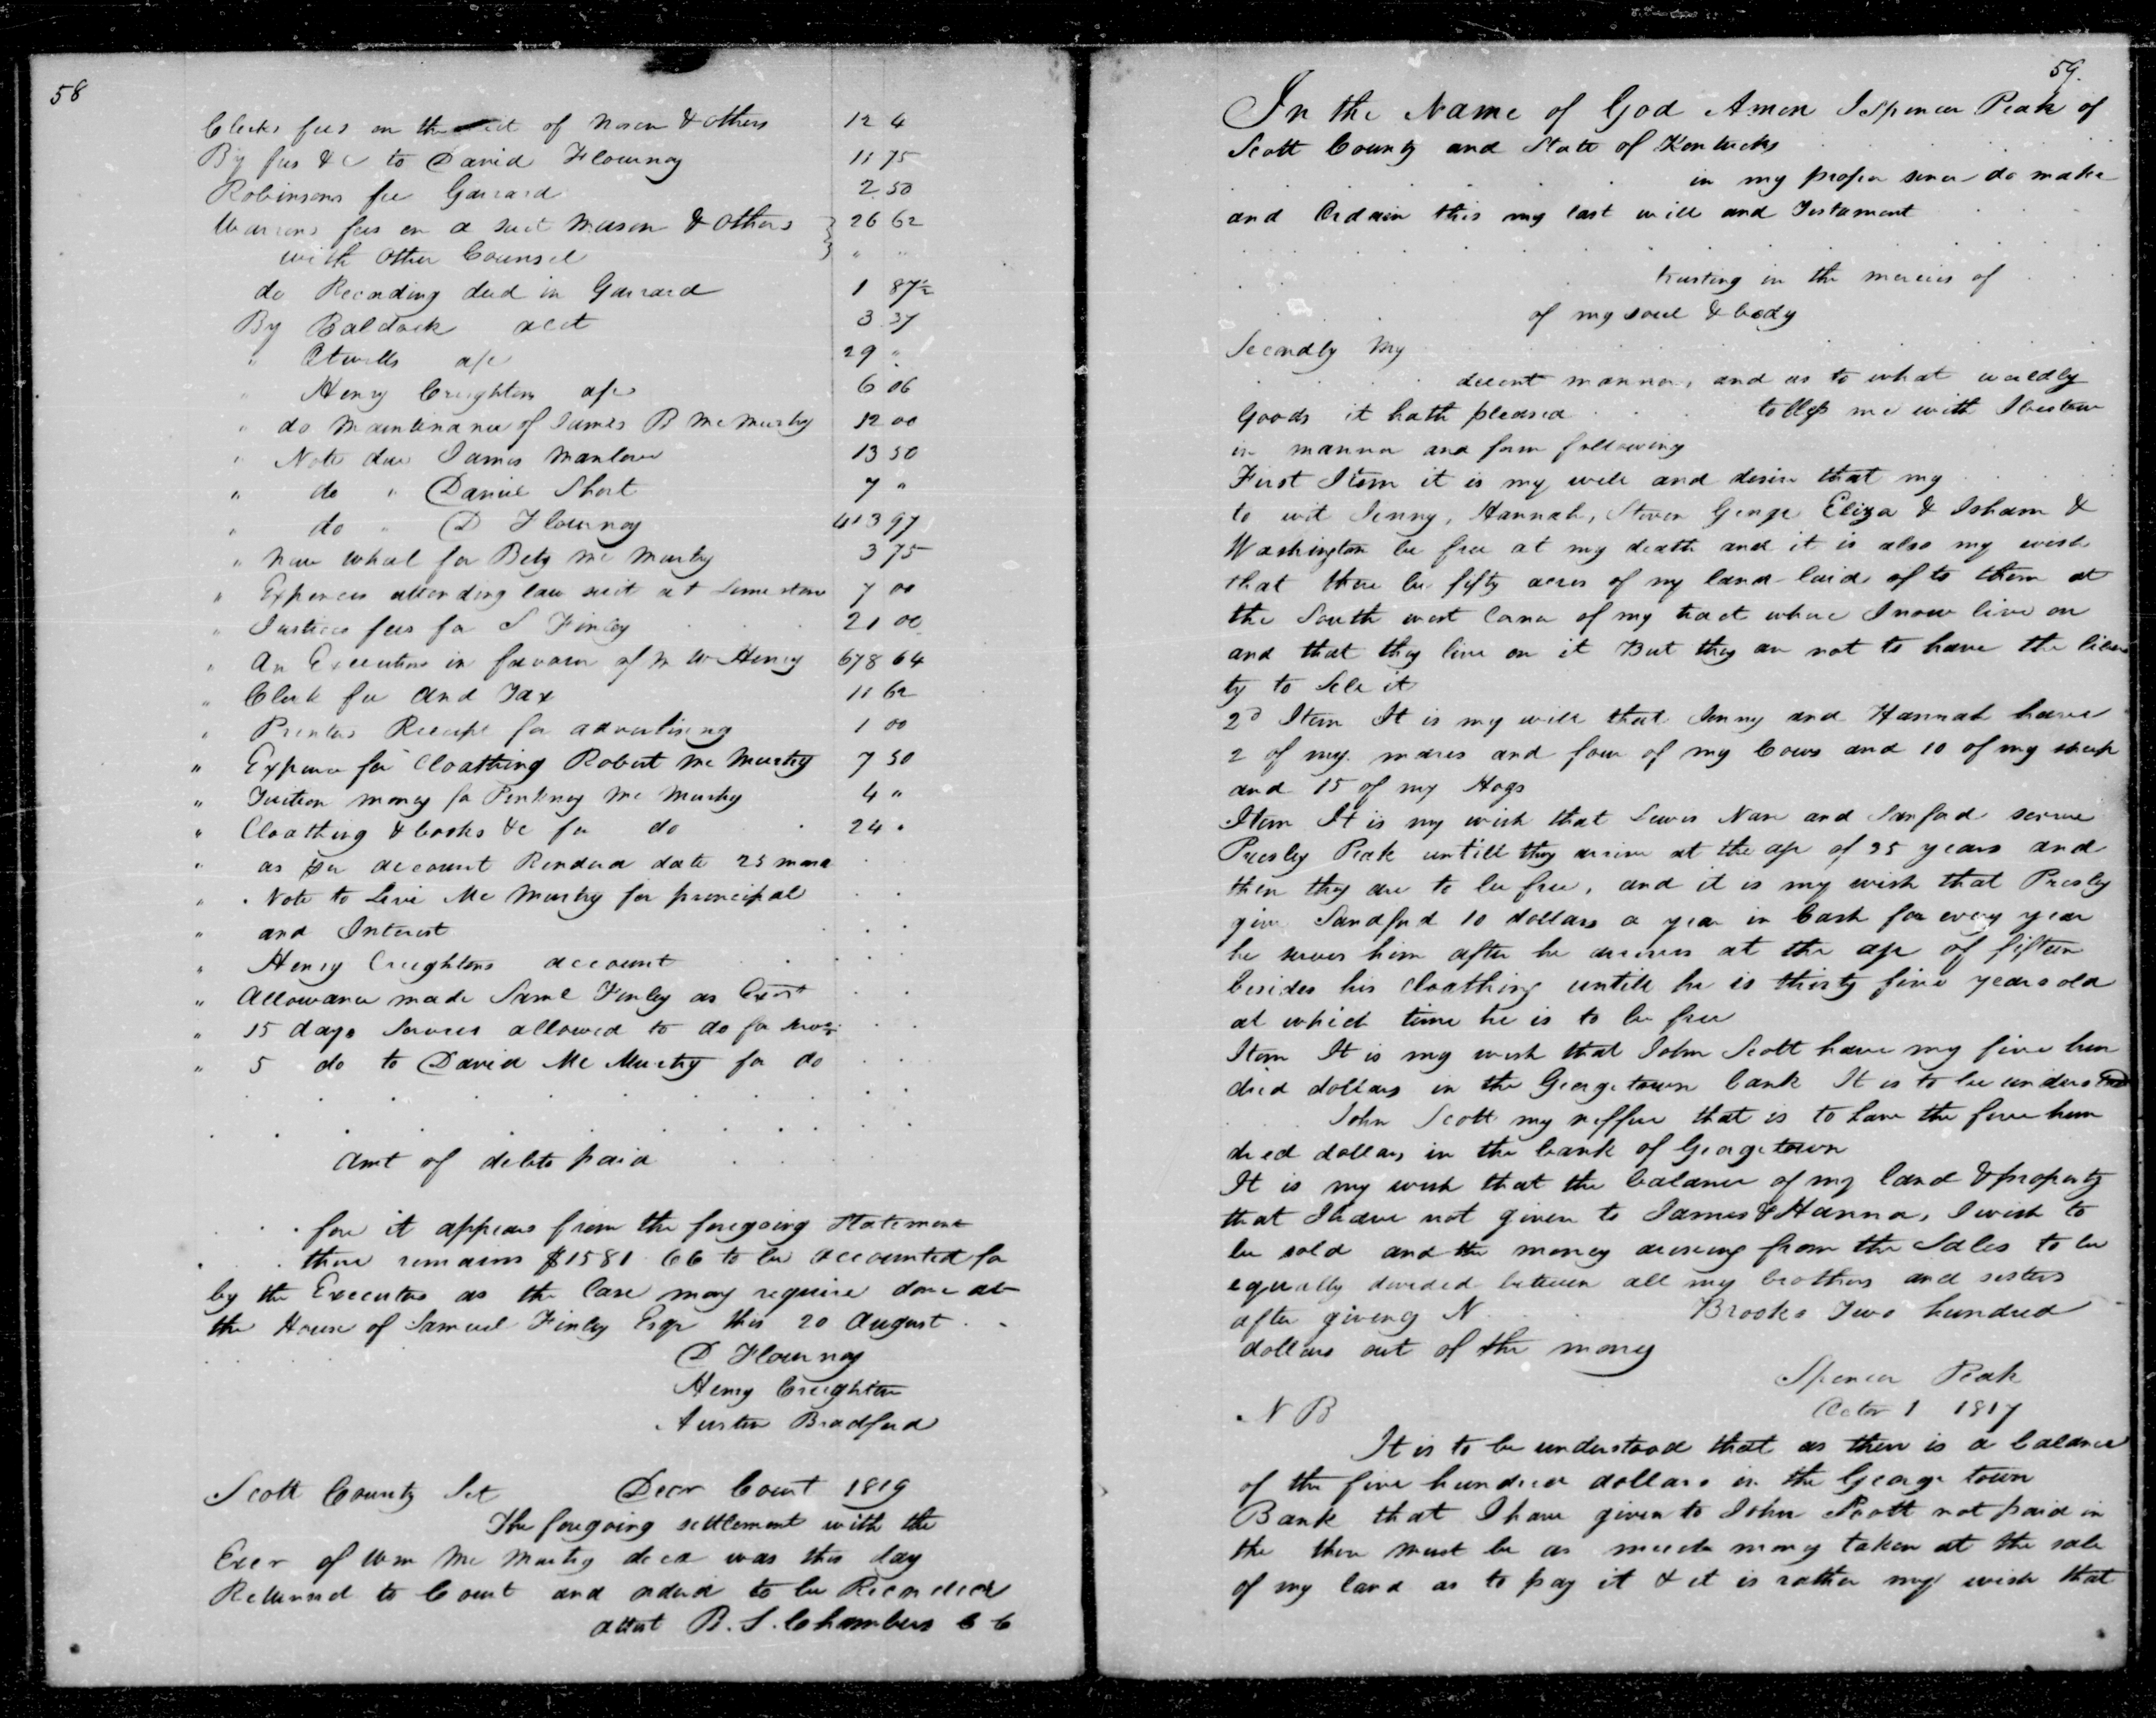 58
Clerks fees on the suit of Mason & others 12 4
By fees &c to David Flournoy 11 75
Robinsons fee Garrard 2 50
Warrens fees on a suit Mason & others } 26 62
with other Counsel } " "
do Recording deed in Garrard 1 87½
By Baldock acct 3 37
" Atwells a/c 29 "
" Henry Creighton a/c 6 06
" do Maintenance of James B McMurtry 12 00
" Note due James Manlove 13 50
" do " Daniel Short 7 "
" do " D Flournoy 413 97
" New wheel for Betsy McMurtry 3 75
" Expences attending law suit at Limestone 7 00
" Justices fees for S Finley 21 00
" An Execution in favour of M W Henry 678 64
" Clerk fee and Tax 11 62
" Printers Receipt for advertising 1 00
" Expence for Cloathing Robert McMurtry 7 50
" Tuition money for Pinkney McMurtry 4 "
" Cloathing & books &c for do 24 "
" as per account Rendered date 25
" Note to Levi McMurtry for principal
" and Interest
" Henry Creightons account
" Allowance made Saml Finley as Exor
" 15 days Services allowed to do for
" 5 do to David McMurtry for do
Amt of debts paid
fore it appears from the foregoing Statement
there remains $1581 66 to be accounted for
by the Executors as the Case may require done at
the House of Samuel Finley Esqr this 20 August
D Flournoy
Henry Creighton
Austin Bradford
Scott County Sct Decr Court 1819
The foregoing settlement with the
Exor of Wm McMurtry decd was this day
Returned to Court and ordered to be Recorded
attest B. S. Chambers C C
59.
In the Name of God Amen I Spencer Peak of
Scott County and State of Kentucky
in my proper sences do make
and Ordain this my last will and Testament
trusting in the mercies of
of my soul & body
Secondly My
decent manner, and as to what worldly
Goods it hath pleased to bless me with I bestow
in manner and form following
First Item it is my will and desire that my
to wit Jenny, Hannah, Steven George Eliza & Isham &
Washington be free at my death and it is also my wish
that there be fifty acres of my land laid of to them at
the South west Corner of my tract where I now live on
and that they live on it But they are not to have the liber
ty to Sell it
2d Item It is my will that Jenny and Hannah have
2 of my mares and four of my Cows and 10 of my sheep
and 15 of my Hogs
Item It is my wish that Lewis Nace and Sanford serve
Presley Peak untill they arrive at the age of 35 years and
then they are to be free, and it is my wish that Presley
give Sandford 10 dollars a year in Cash for every year
he serves him after he arrives at the age of fifteen
besides his cloathing untill he is thirty five years old
at which time he is to be free
Item It is my wish that John Scott have my five hun
dred dollars in the Georgetown bank It is to be understood
John Scott my neffue that is to have the five hun
dred dollars in the bank of Georgetown
It is my wish that the balance of my land & property
that I have not given to James & Hanna, I wish to
be sold and the money arising from the Sales to be
equally devided between all my brothers and sisters
after giveing N Brooks Two hundred
dollars out of the money
Spencer Peak
Octor 1 1817
N B
It is to be understood that as there is a balance
of the five hundred dollars in the George town
Bank that I have given to John Scott not paid in
the there must be as much money taken at the sale
of my land as to pay it & it is rather my wish that